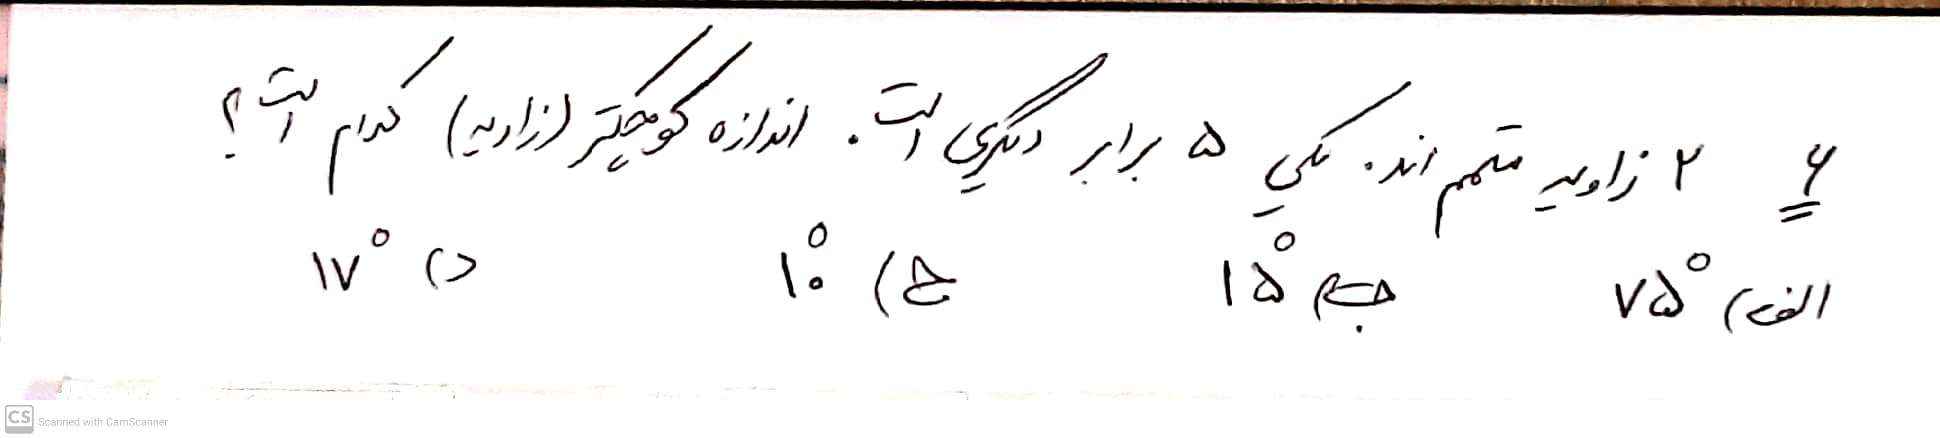 ۶ ۲ زاویه متمم اند. یکی ۵ برابر دیگری است. اندازه کوچکتر (زاویه) کدام است؟
الف) ۷۵° ب) ۱۵° ج) ۱۰° د) ۱۷°
CS Scanned with CamScanner